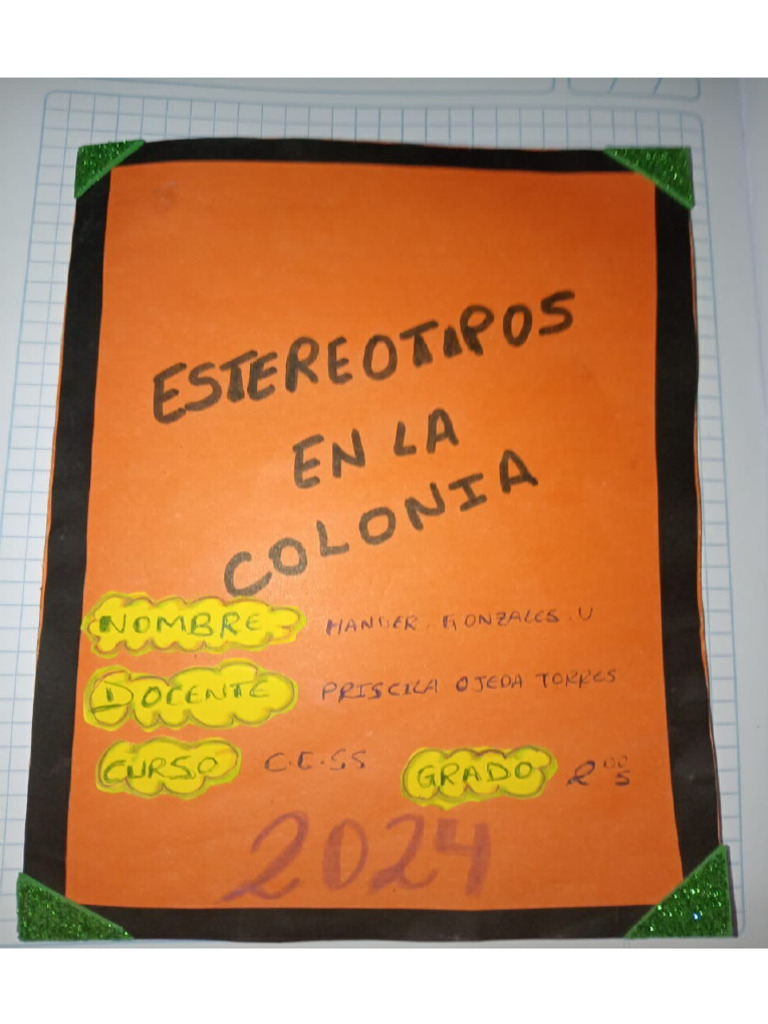 ESTEREOTIPOS
EN LA
COLONIA
NOMBRE HANDER. GONZALES. V
DOCENTE PRISCILA OJEDA TORRES
CURSO C.C.SS GRADO 2DO S
2024